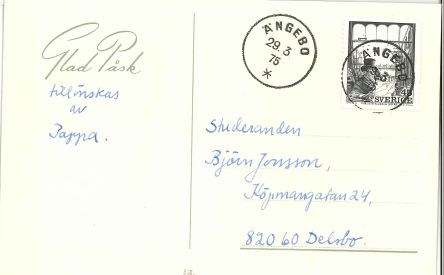 Glad Påsk
tillönskas
av
Pappa.
ÄNGEBO
29.3
75
*
ÄNGEBO
SVERIGE
Studeranden
Björn Jonsson,
Köpmangatan 24,
820 60 Delsbo.